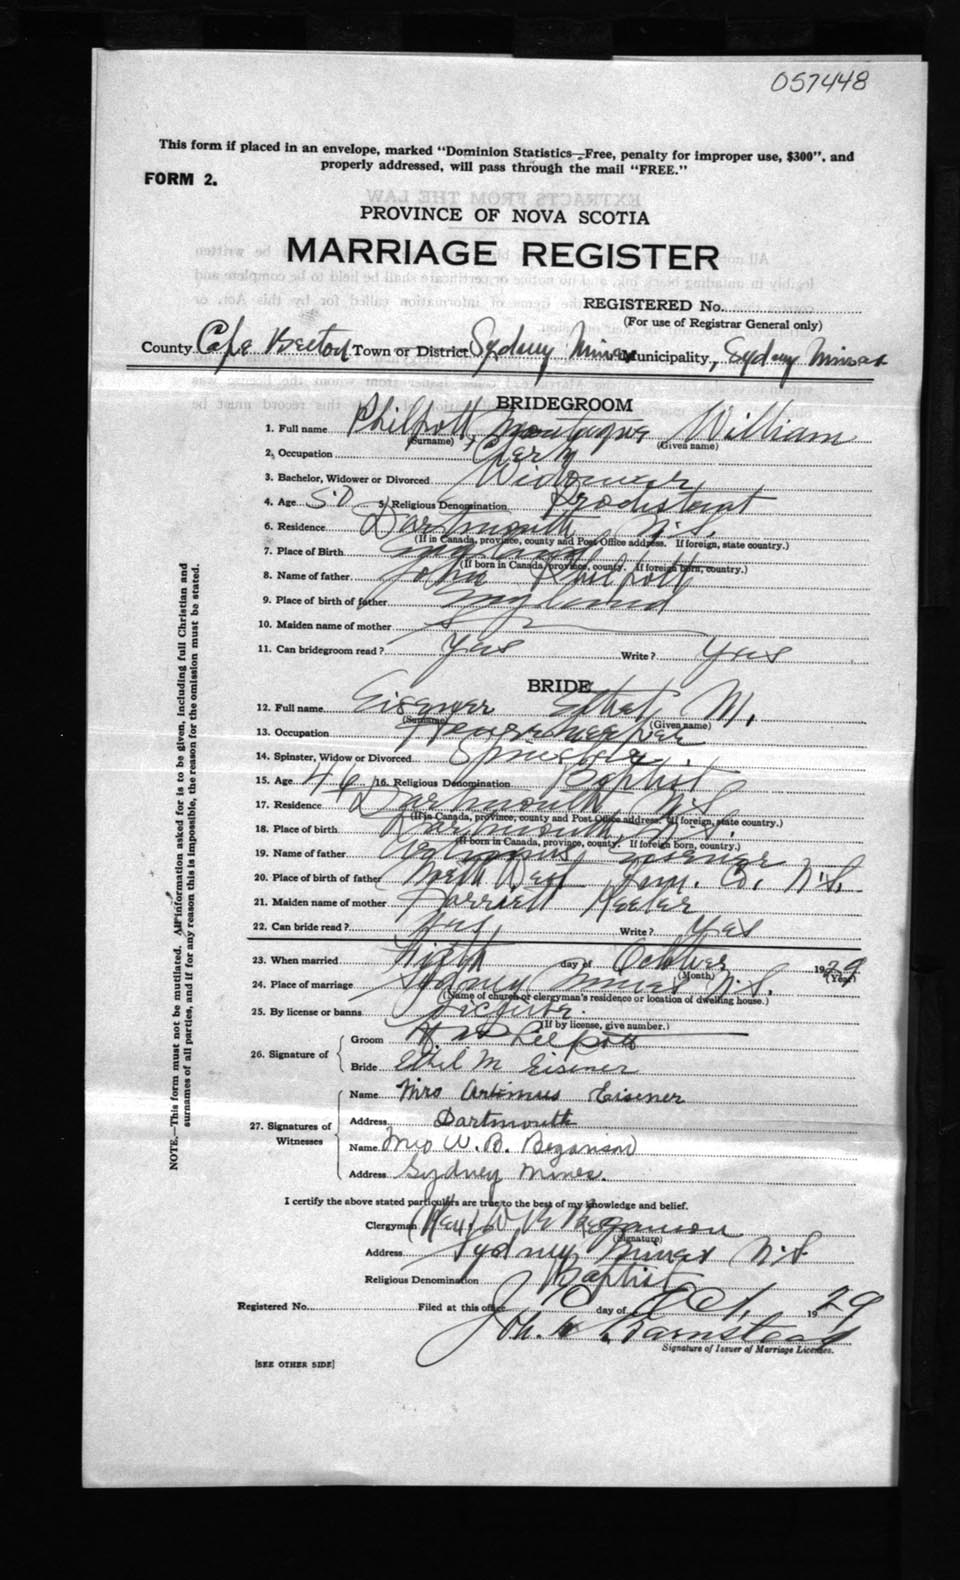 057448
This form if placed in an envelope, marked "Dominion Statistics—Free, penalty for improper use, $300", and
properly addressed, will pass through the mail "FREE."
FORM 2.
PROVINCE OF NOVA SCOTIA
MARRIAGE REGISTER
REGISTERED No.
(For use of Registrar General only)
County Cape Breton Town or District Sydney Mines Municipality, Sydney Mines
BRIDEGROOM
1. Full name Philpott, Montague William
(Surname) (Given name)
2, Occupation Clerk
3. Bachelor, Widower or Divorced Widower
4. Age 50 5. Religious Denomination Prodistant
6. Residence Dartmouth N.S.
(If in Canada, province, county and Post Office address. If foreign, state country.)
7. Place of Birth England
(If born in Canada, province, county. If foreign born, country.)
8. Name of father John Philpott
9. Place of birth of father England
10. Maiden name of mother
11. Can bridegroom read? Yes Write? Yes
BRIDE
12. Full name Eisener Ethel M.
(Surname) (Given name)
13. Occupation Housekeeper
14. Spinster, Widow or Divorced Spinster.
15. Age 46 16. Religious Denomination Baptist
17. Residence Dartmouth N.S.
(If in Canada, province, county and Post Office address. If foreign, state country.)
18. Place of birth Dartmouth, N.S.
(If born in Canada, province, county. If foreign born, country.)
19. Name of father Artimus Eisener
20. Place of birth of father North West Lun. Co. N.S.
21. Maiden name of mother Harriett Keeler
22. Can bride read? Yes Write? Yes
23. When married Fifth day of October 1929
(Month) (Year)
24. Place of marriage Sydney Mines N.S.
(Name of church or clergyman's residence or location of dwelling house.)
25. By license or banns License.
(If by license, give number.)
26. Signature of
Groom W. M. Philpott
Bride Ethel M Eisener
27. Signatures of Witnesses
Name Mrs Artimus Eisener
Address Dartmouth
Name Mrs W. B. Bezanson
Address Sydney Mines.
I certify the above stated particulars are true to the best of my knowledge and belief.
Clergyman Rev. W. B. Bezanson
(Signature)
Address Sydney Mines N.S.
Religious Denomination Baptist
Registered No. Filed at this office day of Oct. 1929
Barnstead
Signature of Issuer of Marriage Licenses.
[SEE OTHER SIDE]
NOTE.—This form must not be mutilated. All information asked for is to be given, including full Christian and
surnames of all parties, and if for any reason this is impossible, the reason for the omission must be stated.